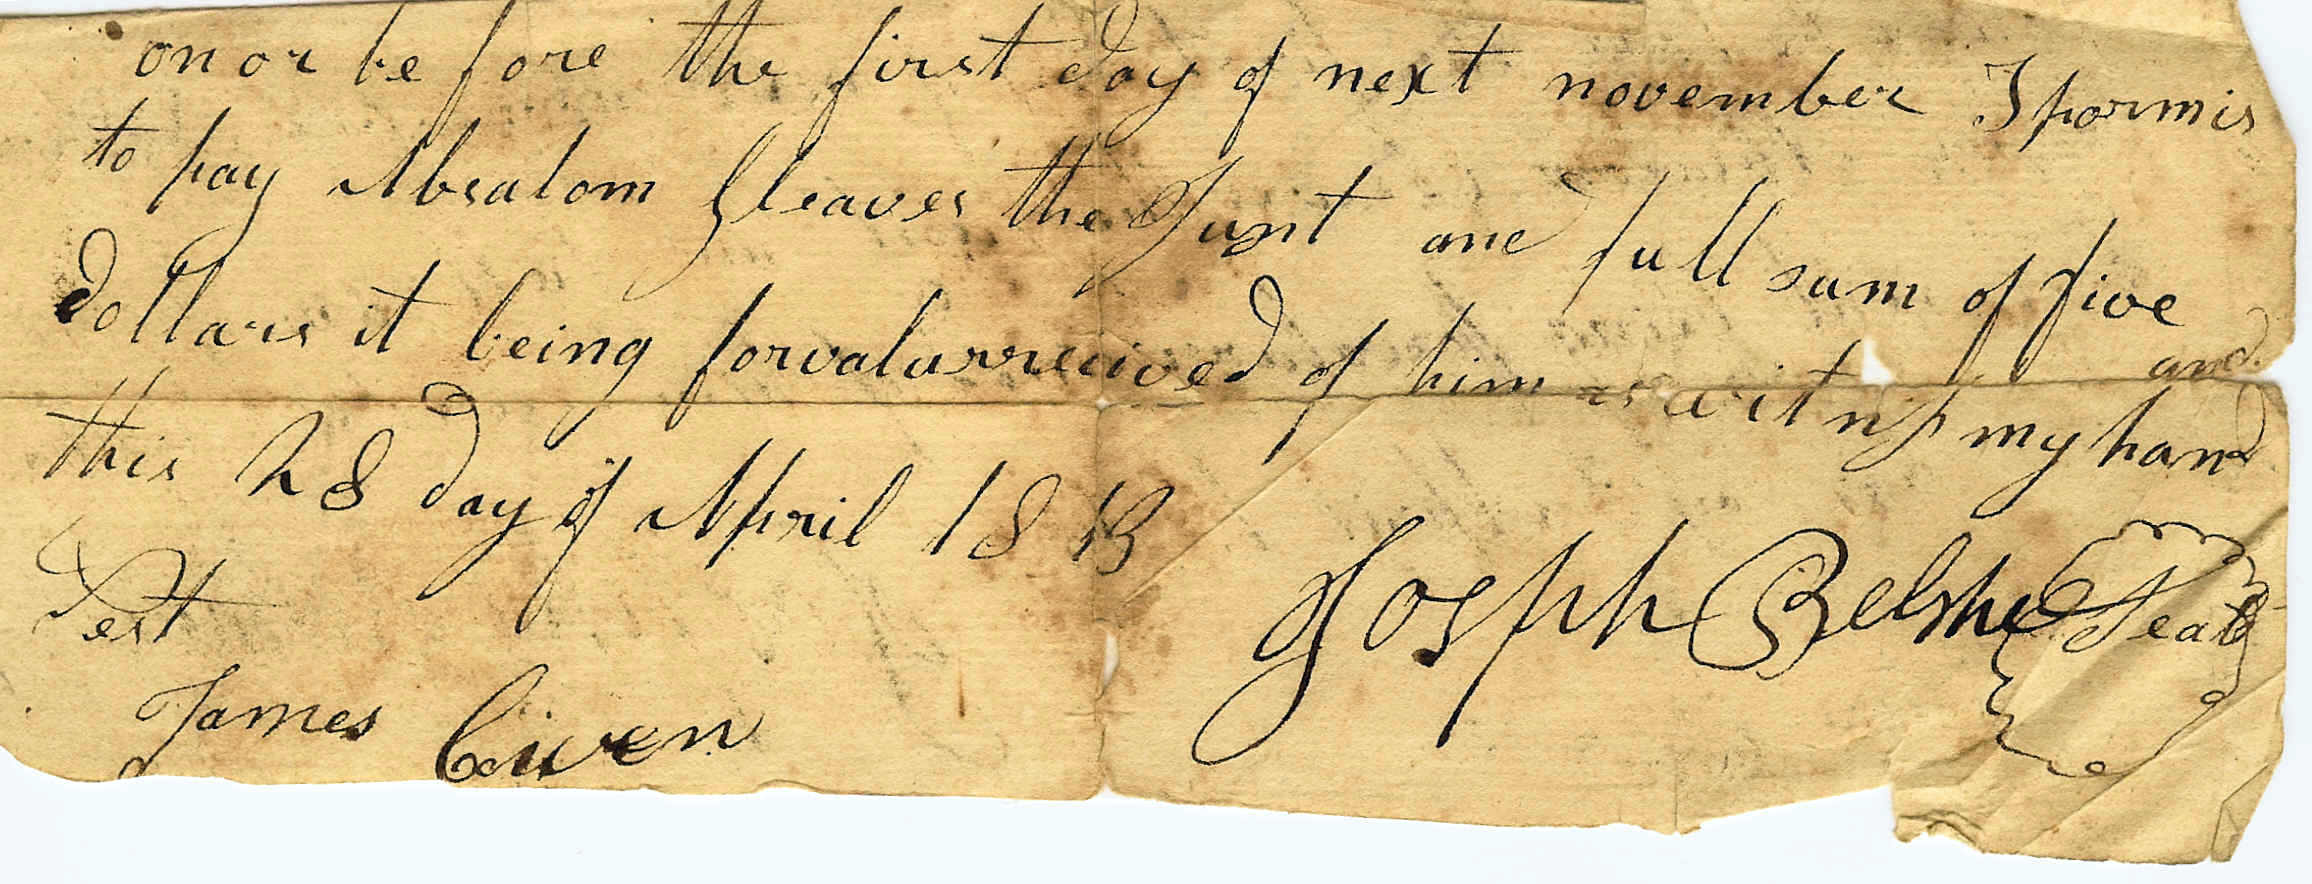 on or before the first day of next november I pormis
to pay Absalom Gleaves the Just and full sum of five
dollars it being for valur reccived of him as witness my hand and
this 28 day of April 1813
Test
Joseph Belshe Seal
James Given